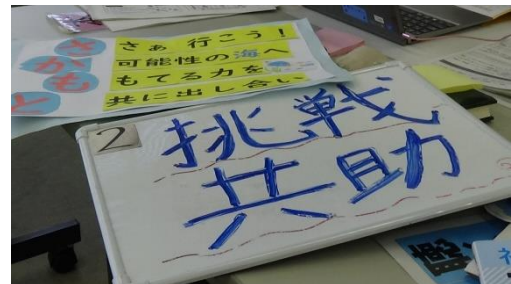 さぁ 行こう!
可能性の海へ
もてる力を
共に出し合い
2
挑戦
共助